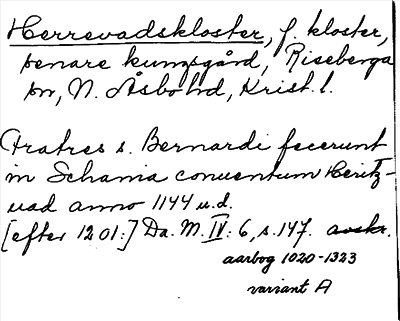 Herrevadskloster, f. kloster,
senare kungsgård, Riseberga
sn, N. Åsbo hd, Krist. l.
Fratres s. Bernardi fecerunt
in Schania conuentum Heritz-
uad anno 1144 u.d.
[efter 1201:] Da. M. IV: 6, s. 147. avskr.
aarbog 1020-1323
variant A